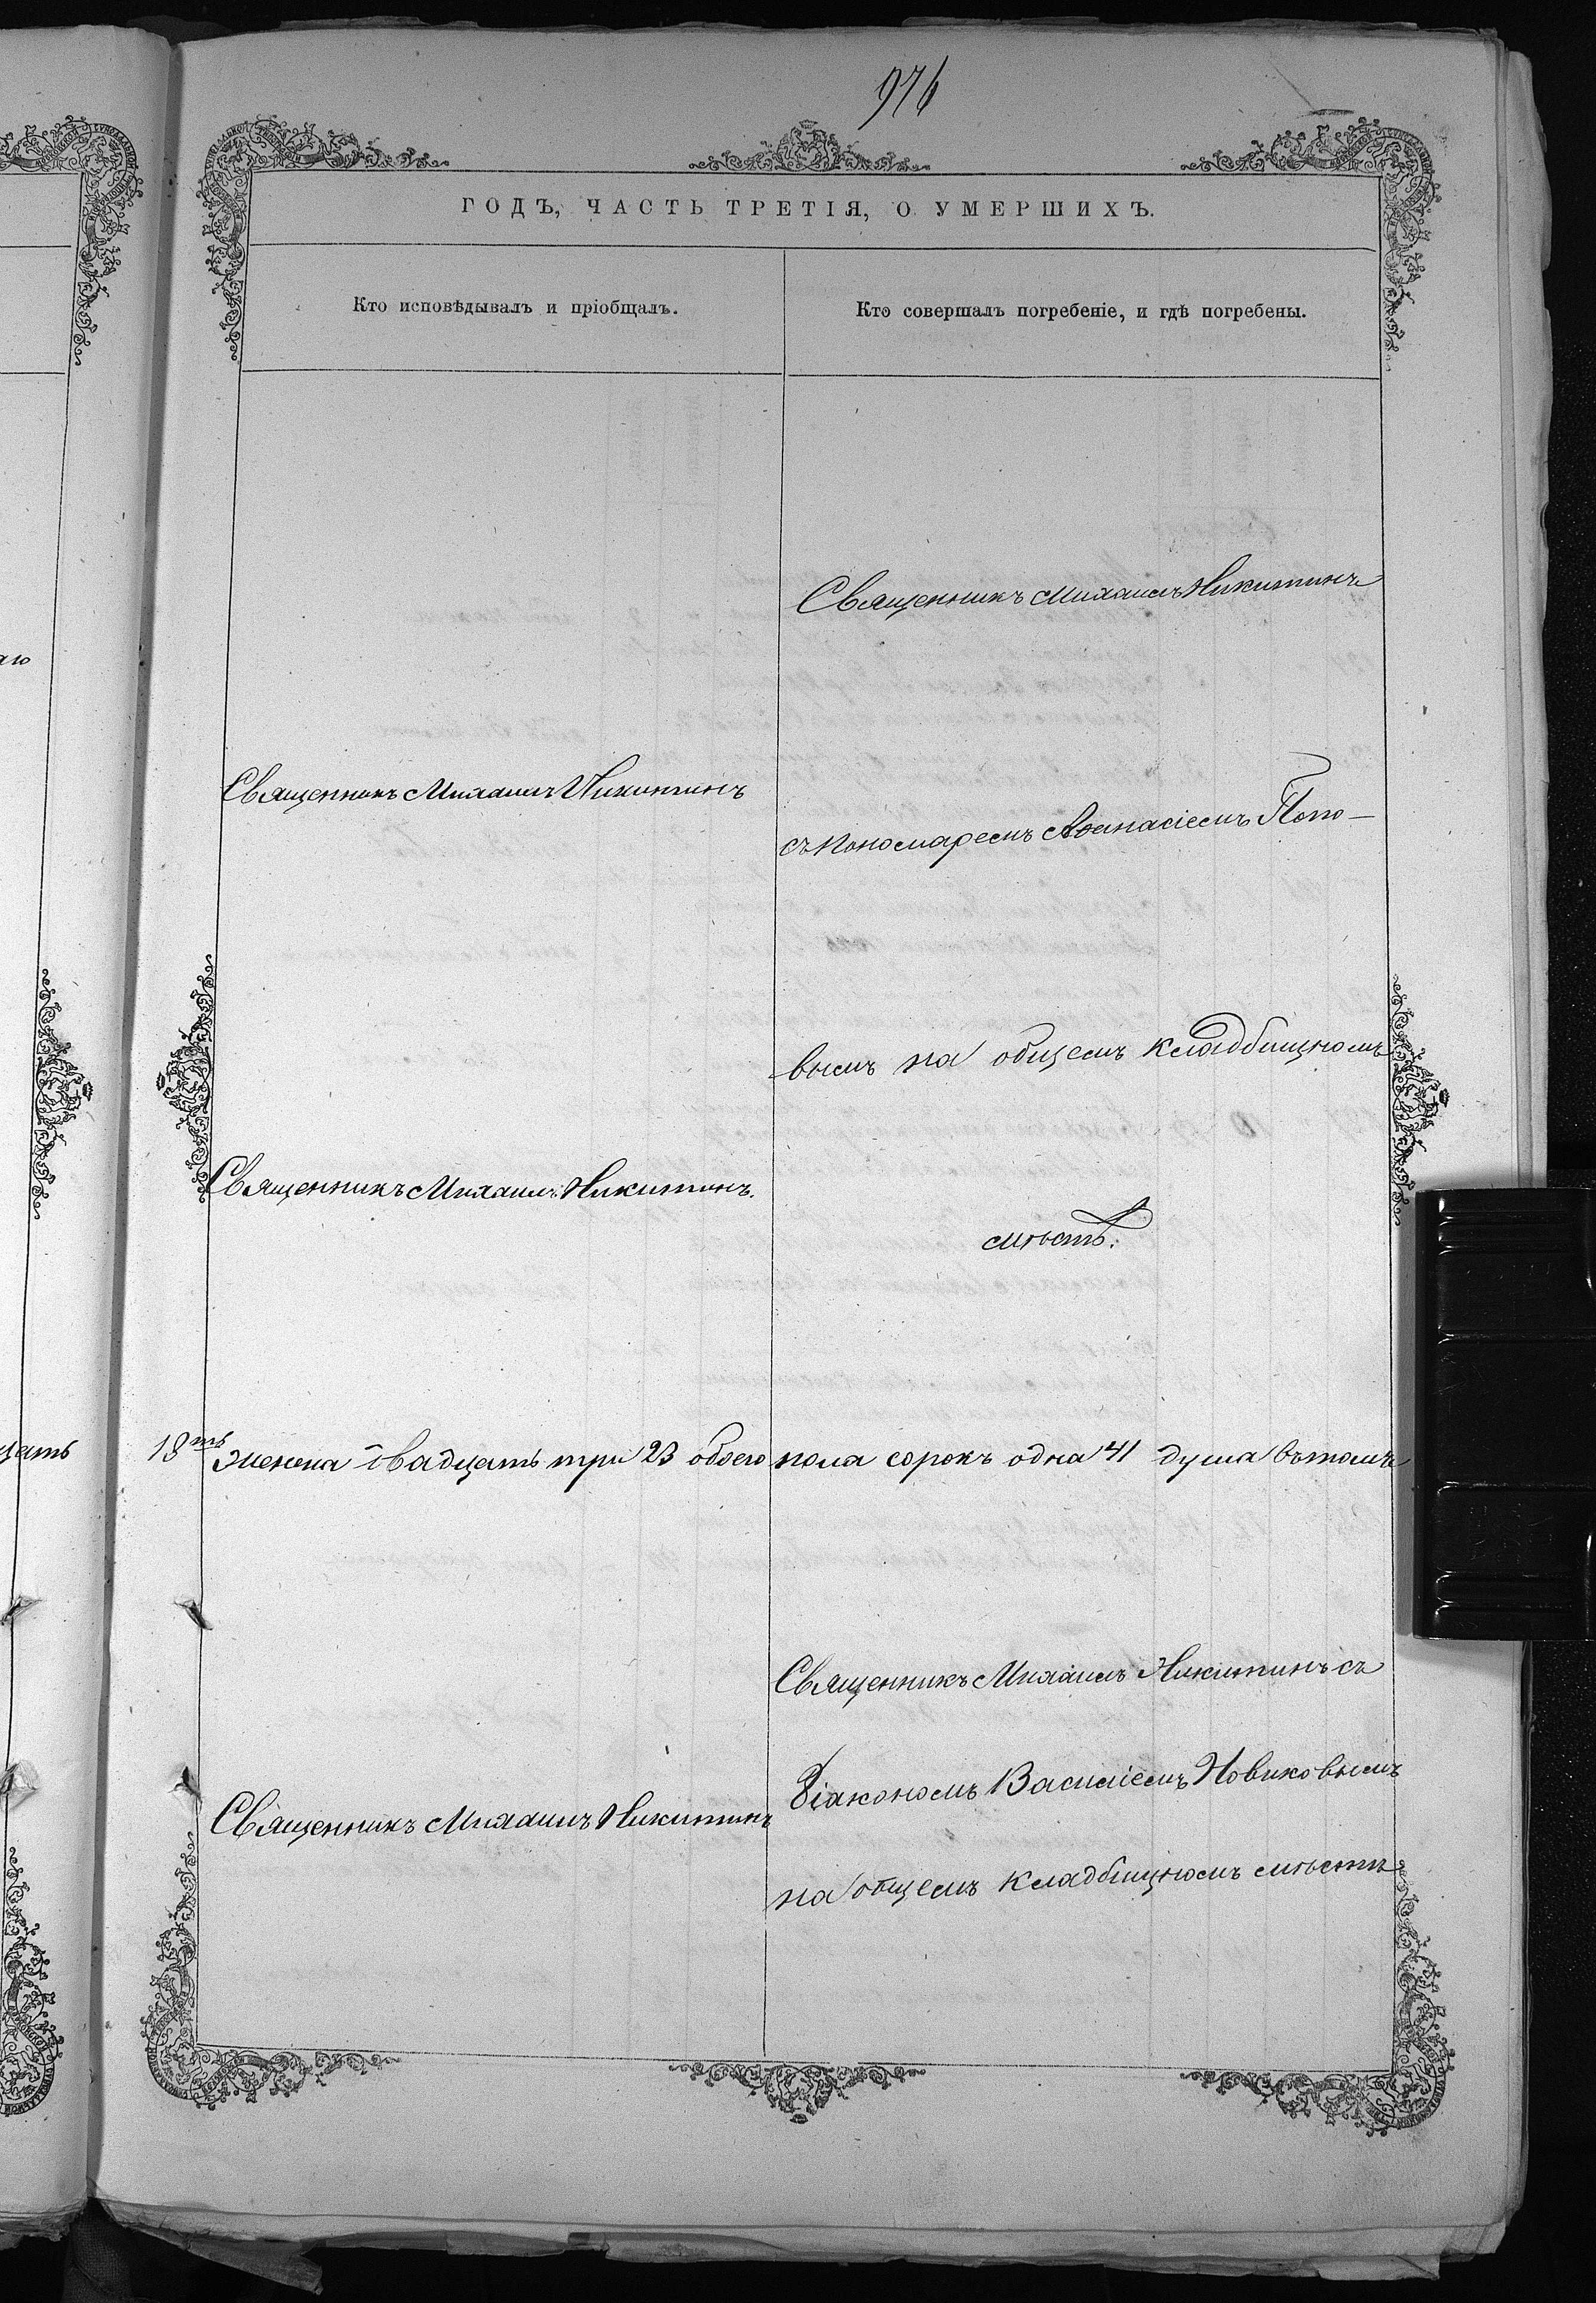 976
ГОДЪ, ЧАСТЬ ТРЕТІЯ, О УМЕРШИХЪ.
Кто исповѣдывалъ и пріобщалъ.
Кто совершалъ погребеніе, и гдѣ погребены.
Священникъ Михаилъ Никитинъ
Священникъ Михаилъ Никитинъ
съ пономаремъ Аѳанасіемъ Попо-
вымъ на общемъ кладбищномъ
Священникъ Михаилъ Никитинъ.
мѣстѣ.
18ть женска двадцать три 23 обоего пола сорокъ одна 41 душа въ томъ
Священникъ Михаилъ Никитинъ съ
Діакономъ Василіемъ Новиковымъ
Священникъ Михаилъ Никитинъ
на общемъ кладбищномъ мѣстѣ